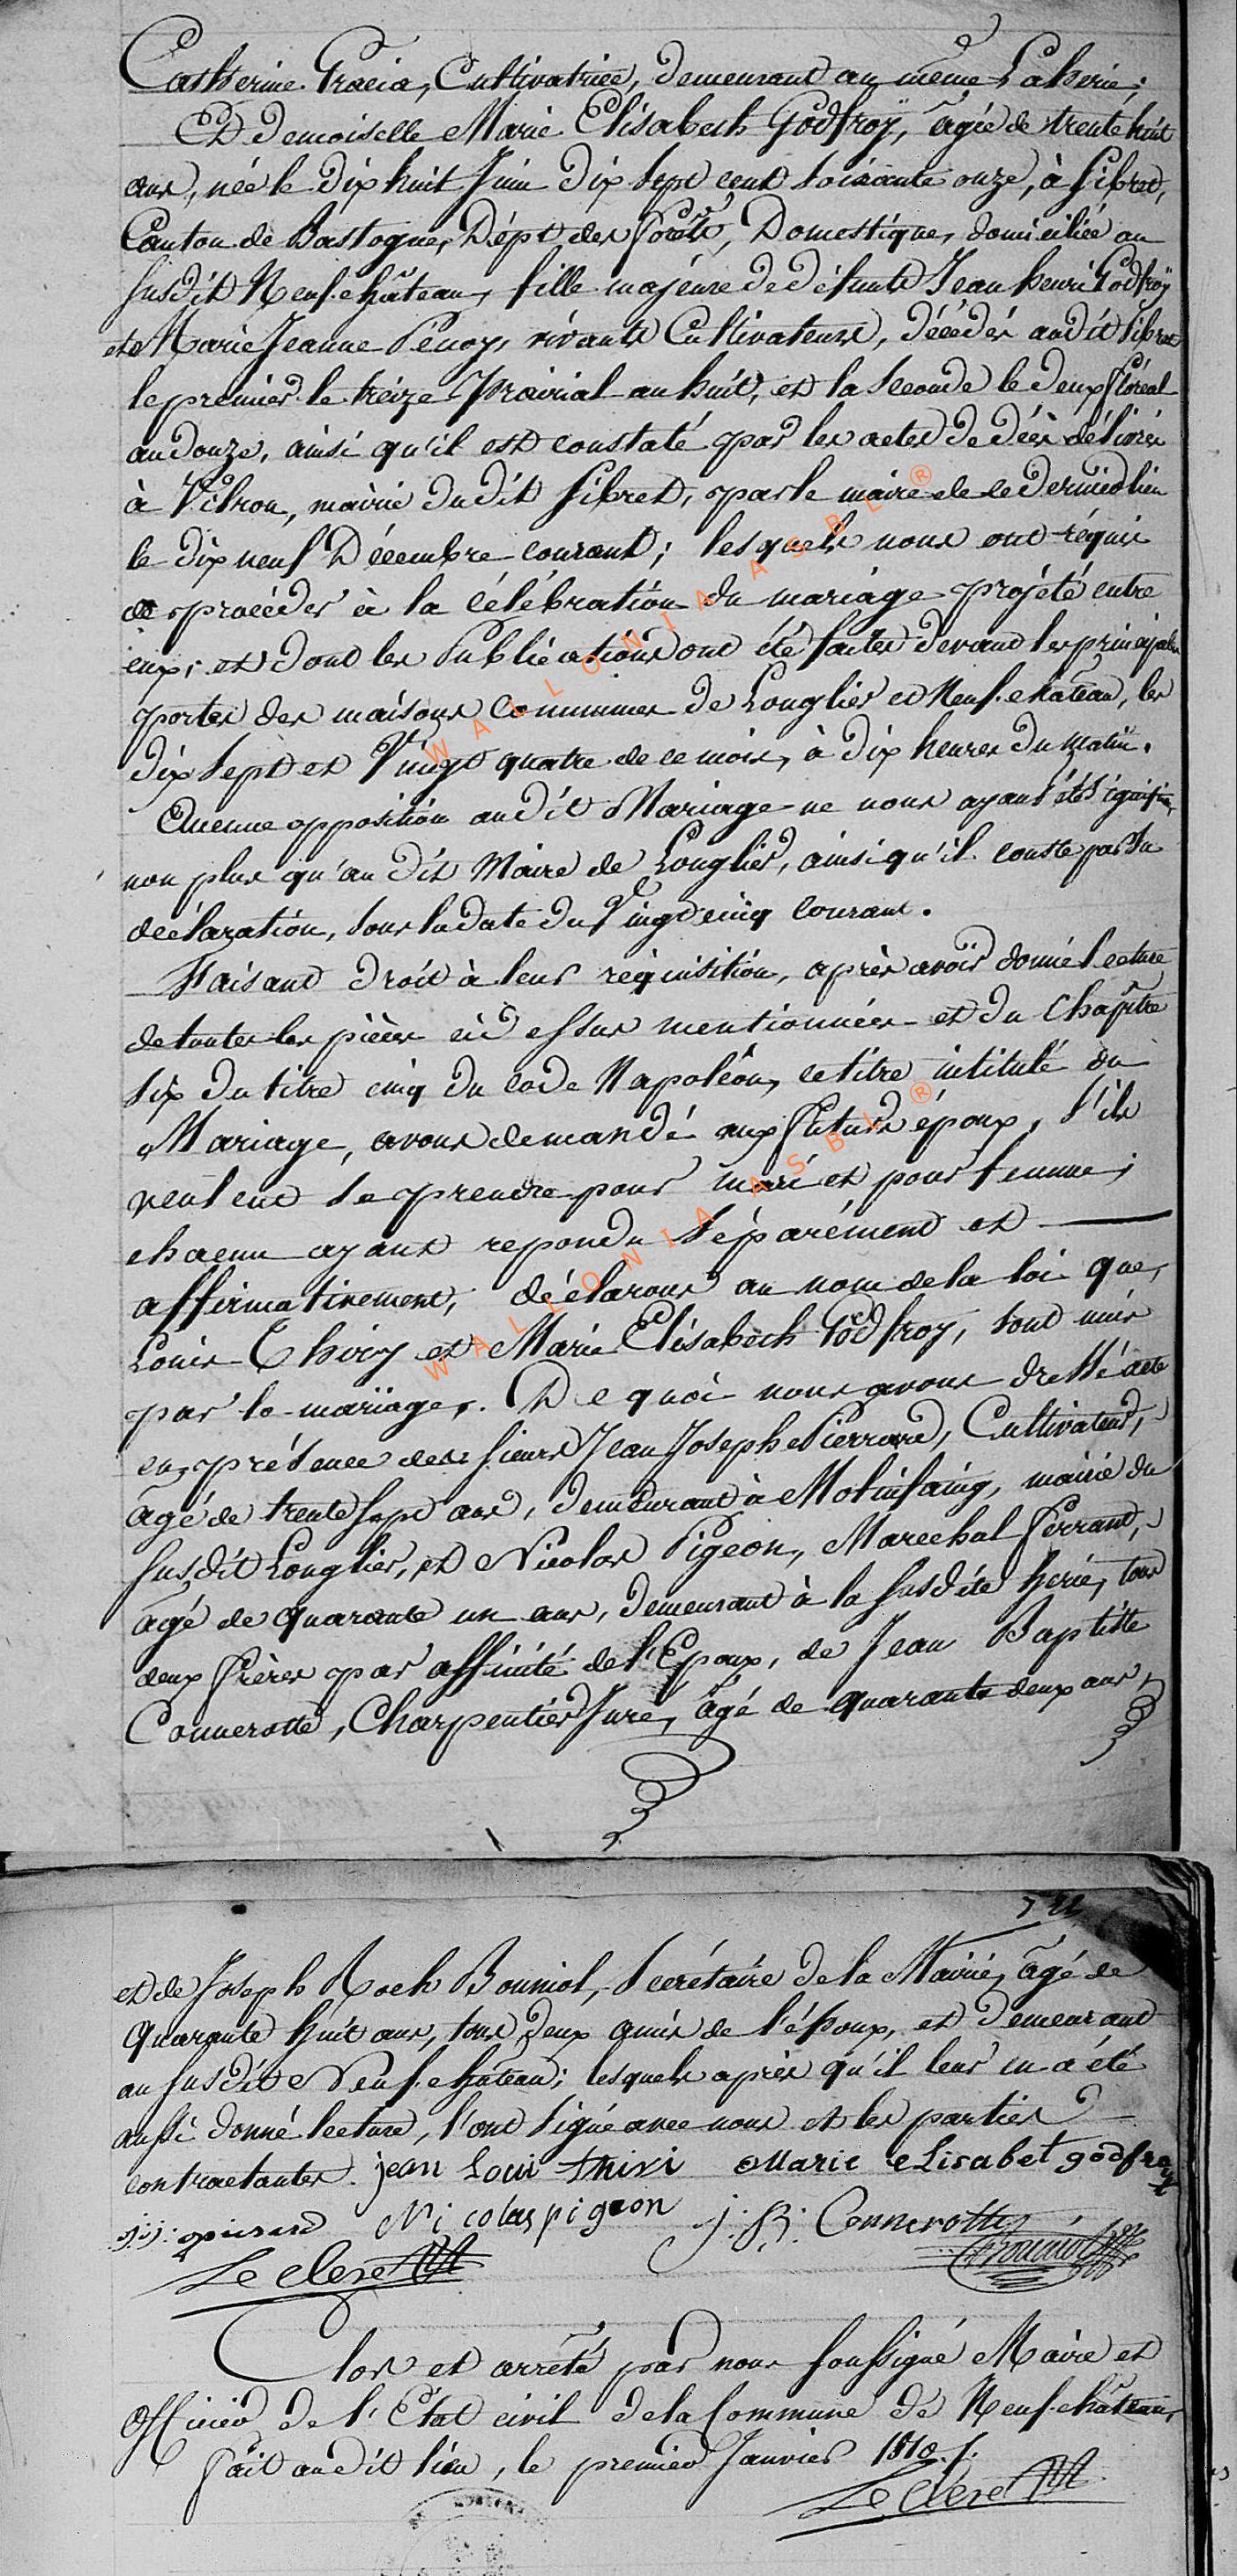 Catherine Gracia, Cultivatrice, demeurant au même Laherie;
Et Demoiselle Marie Elisabeth Godfroÿ, agée de trente huit
ans, née le dix huit Juin dix Sept cent Soixante onze, à Sibret,
Canton de Bastogne, Dépt. des forêts, Domestique, domiciliée au
susdit Neufchâteau, fille majeure de défunts Jean henri Godfroÿ
et Marie Jeanne Penoy, vivants Cultivateurs, décédés audit Sibret
le premier le treize Prairial an huit, et la Seconde le deux floréal
an douze, ainsi qu'il est constaté par les actes de décès délivrés
à Villrou, mairie dudit Sibret, par le maire de ce dernier lieu
le dix neuf Décembre courant; lesquels nous ont réquis
de procéder à la Célébration du mariage projété entre
eux; et dont les Publications ont été faites devant les principales
portes des maisons Communes de Longlier et Neuf-château, les
dix Sept et Vingt quatre de ce mois, à dix heures du matin.
Aucune opposition audit Mariage ne nous ayant été Signifiée,
non plus qu'au dit Maire de Longlier, ainsi qu'il conste par Sa
déclaration, Sous la date du Vingt cinq Courant.
Faisant droit à leur réquisition, après avoir donné lecture
de toutes les pièces ci dessus mentionnées et du Chapitre
Six du titre cinq du code Napoléon, ce titre intitulé du
Mariage, avons demandé aux futurs époux, s'ils
veulent Se prendre pour mari et pour femme;
chacun ayant repondu Séparément et
affirmativement, déclarons au nom de la loi que,
Louis Thiry et Marie Elisabeth Godfroy, Sont unis
par le mariage. De quoi nous avons dressé acte
en présence des Sieurs Jean Joseph Pierrard, Cultivateur,
agé de trente sept ans, demeurant à Molinfaing, mairie du
susdit Longlier, et Nicolas Pigeon, Marechal ferrant,
agé de quarante un ans, demeurant à la susdite herie, tous
deux frères par affinité de l'Epoux, de Jean Baptiste
Connerotte, Charpentier Juré, âgé de quarante deux ans,
et de Joseph Roch Bouniol, Secrétaire de la Mairie, agé de
quarante huit ans, tous deux amis de l'époux, et demeurant
au susdit Neuf-château; lesquels après qu'il leur en a été
aussi donné lecture, l'ont Signé avec nous et les parties
contractantes. jean Loui thiri Marie eLisabet godfroy
j:j: pierard Nicolas pigeon j:B: Connerotte Bouniol
Le Clere
Clos et arrêté par nous soussigné Maire et
Officier de l'Etat civil de la Commune de Neuf-château,
fait audit lieu, le premier Janvier 1810./.
Le Clere
WALLONIA ASBL ®
WALLONIA ASBL ®